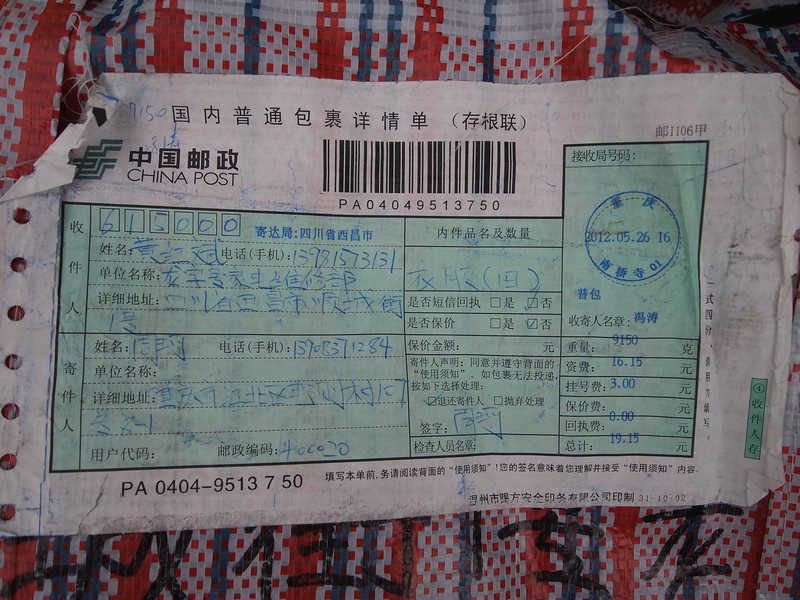 9150
国内普通包裹详情单 (存根联)
邮1106甲
中国邮政
CHINA POST
PA04049513750
接收局号码:
重庆
2012.05.26 16
南桥寺 01
收件人
615000
寄达局:四川省西昌市
姓名: 电话(手机):13981573131
单位名称:
详细地址:四川西昌市顺城街
1号
内件品名及数量
衣服(旧)
是否短信回执 □是 ☑否
是否保价 □是 ☑否
保价金额: 元
普包
收寄人名章:冯涛
重量: 9150 克
资费: 16.15 元
挂号费: 3.00 元
保价费: 元
回执费: 0.00 元
总计: 19.15 元
寄件人
姓名: 电话(手机):13908371284
单位名称:
详细地址:重庆市江北区
用户代码: 邮政编码:400020
寄件人声明:同意并遵守背面的
"使用须知"。如包裹无法投递,
按如下选择处理:
☑退还寄件人 □抛弃处理
签字:
检查人员名章:
一式四分,请用力填写。
④收件人存
填写本单前,务请阅读背面的"使用须知"!您的签名意味着您理解并接受"使用须知"内容。
PA 0404-9513 7 50
温州市强方安全印务有限公司印制 31-10-02